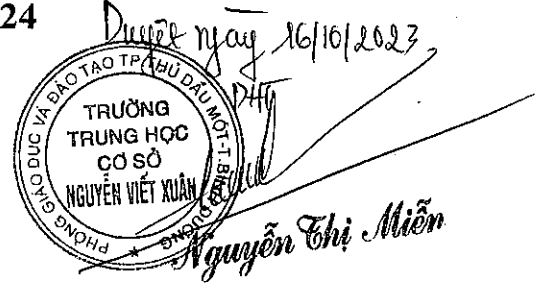 24
Duyệt ngày 16/10/2023
PHT
PHÒNG GIÁO DỤC VÀ ĐÀO TẠO TP.THỦ DẦU MỘT-T.BÌNH DƯƠNG
TRƯỜNG
TRUNG HỌC
CƠ SỞ
NGUYỄN VIẾT XUÂN
★
Nguyễn Thị Miễn